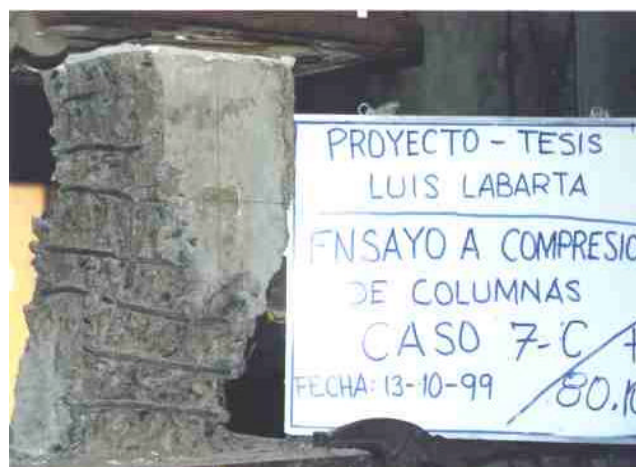 PROYECTO - TESIS
LUIS LABARTA
ENSAYO A COMPRESIO
DE COLUMNAS
CASO 7-C
FECHA: 13-10-99